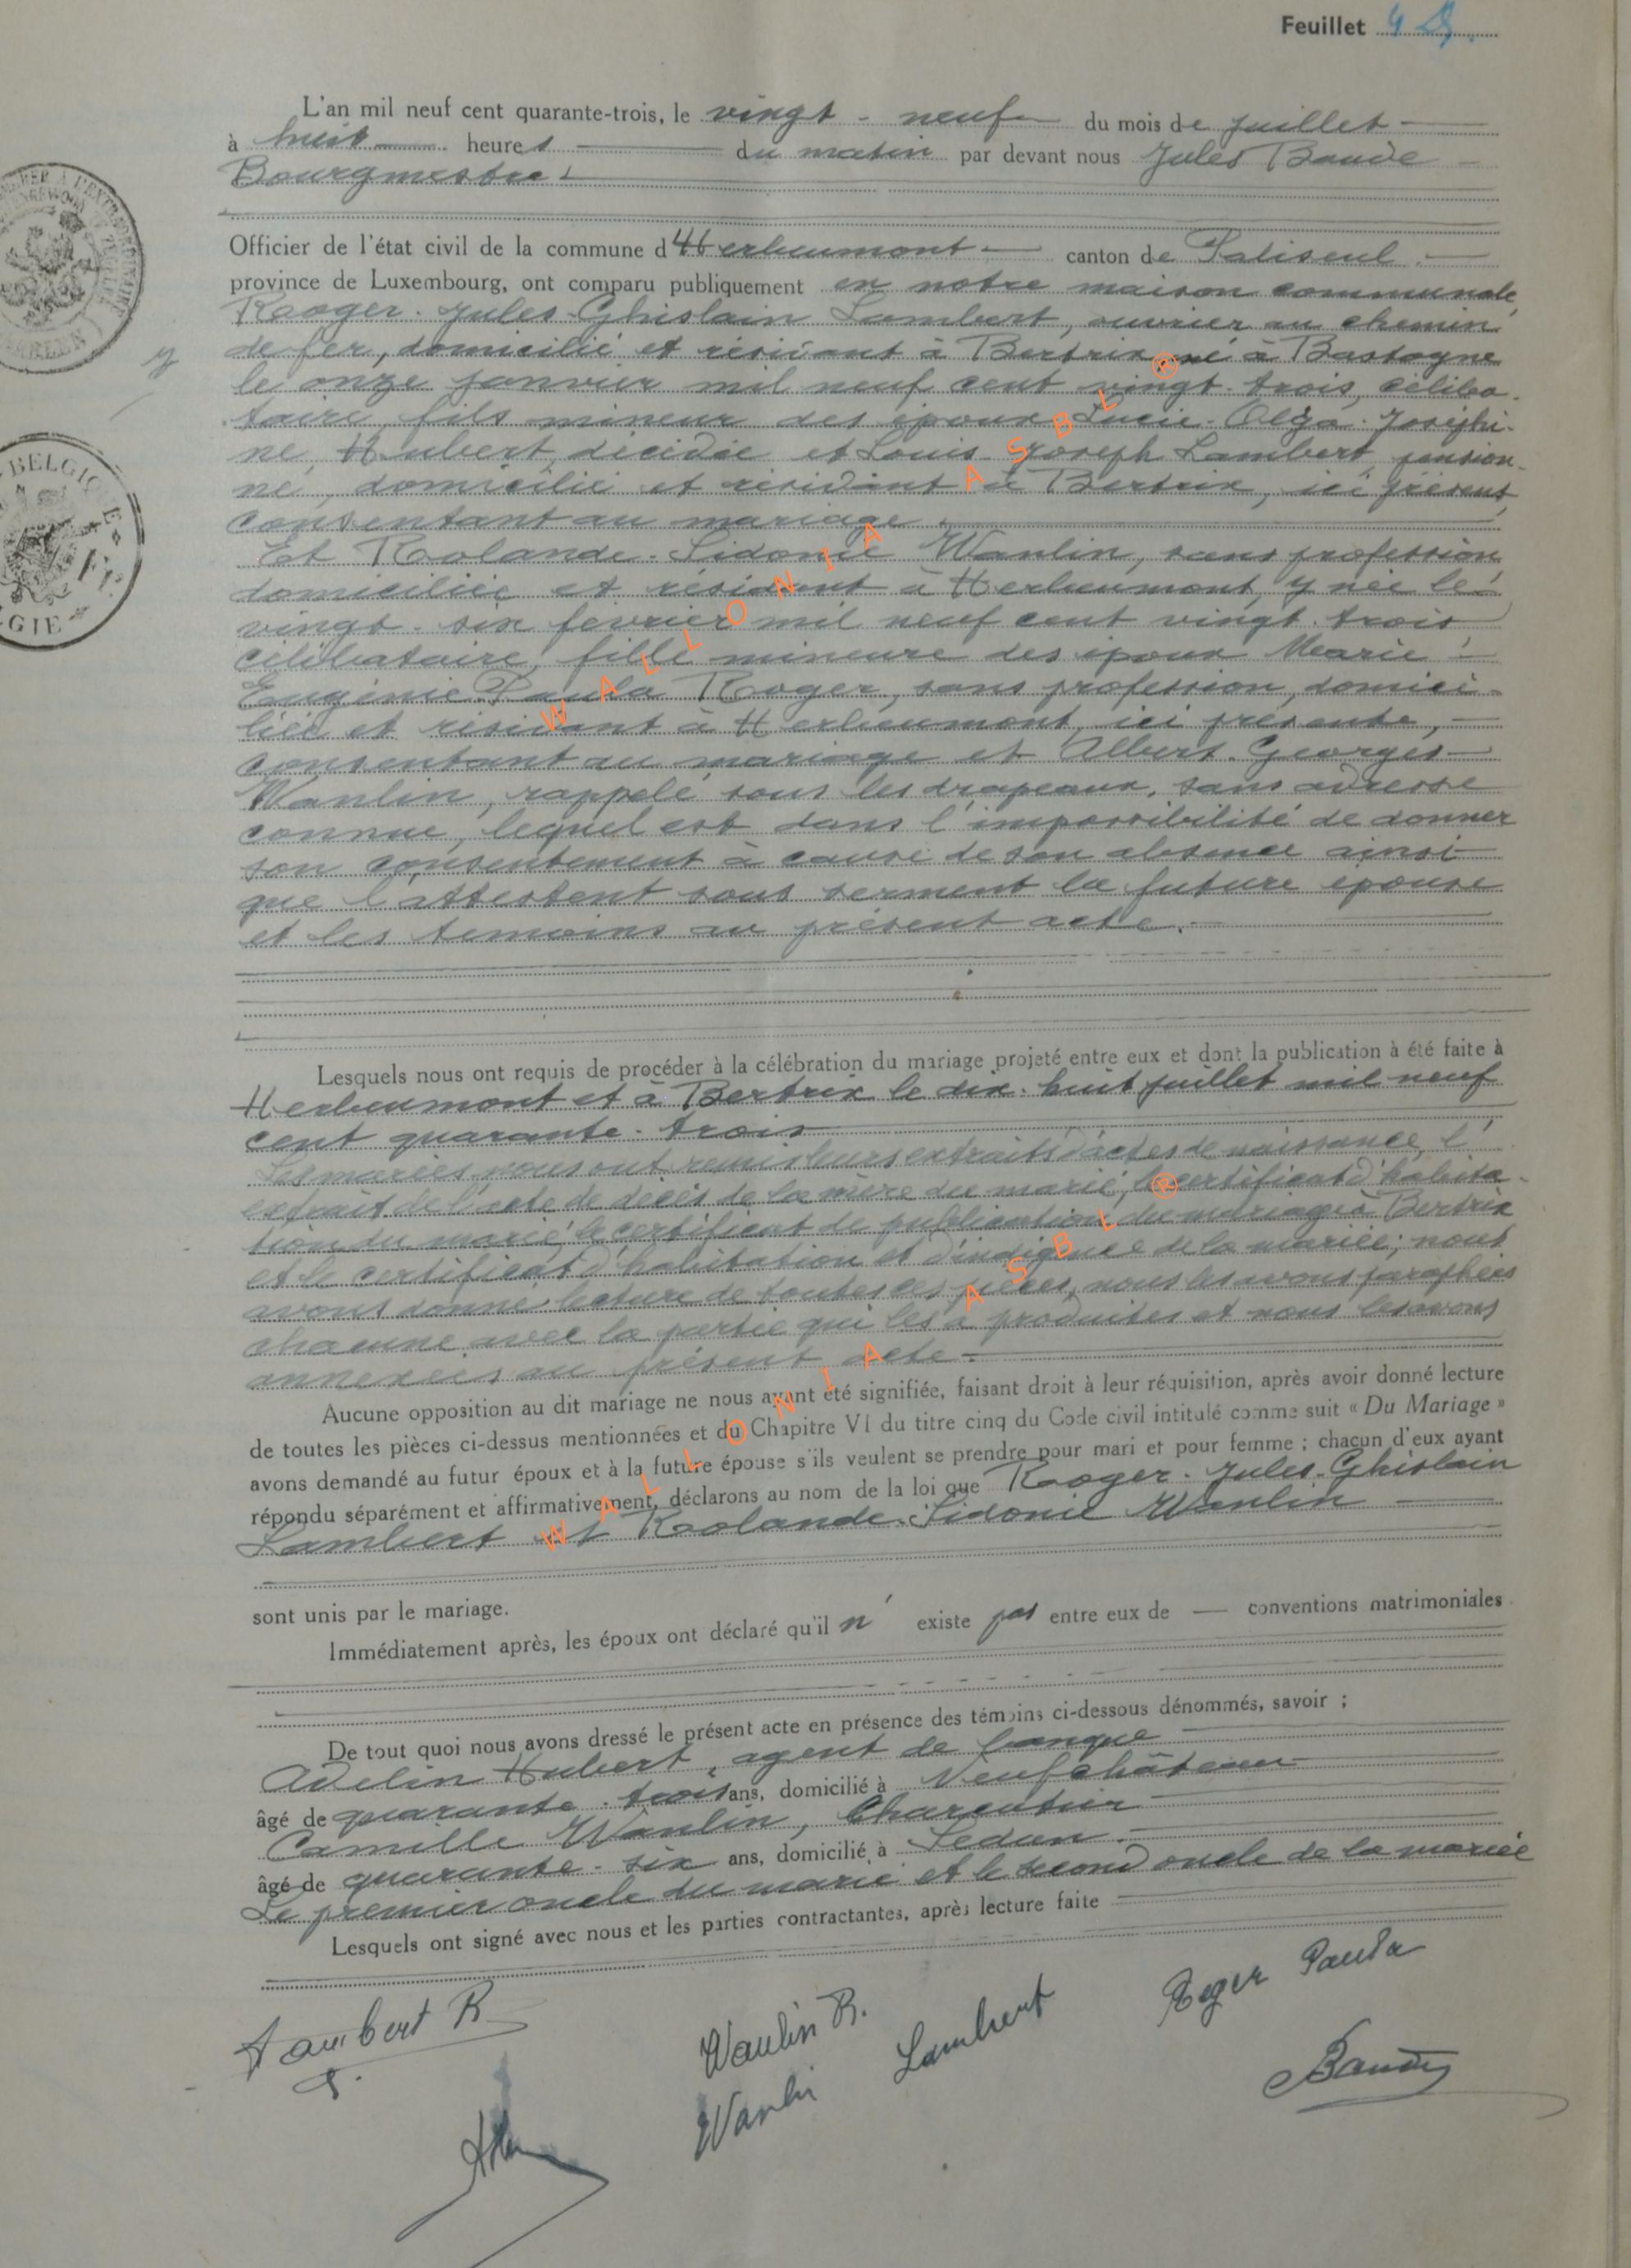 Feuillet 4
L'an mil neuf cent quarante-trois, le vingt-neuf du mois de juillet
à huit heures du matin par devant nous Jules Baude
Bourgmestre
Officier de l'état civil de la commune d'Herbeumont canton de Paliseul
province de Luxembourg, ont comparu publiquement en notre maison communale,
Roger-Jules-Ghislain Lambert, ouvrier au chemin
de fer, domicilié et résidant à Bertrix né à Bastogne
le onze janvier mil neuf cent vingt-trois, céliba-
taire, fils mineur des époux Lucie-Olga-Joséphi-
ne, Hubert, décédée et Louis-Joseph Lambert, pension-
né, domicilié et résidant à Bertrix, ici présent,
consentant au mariage.
Et Rolande-Sidonie Wanlin, sans profession
domiciliée et résidant à Herbeumont, y née le
vingt-six février mil neuf cent vingt-trois,
célibataire, fille mineure des époux Marie-
Eugénie-Paula Roger, sans profession, domici-
liée et résidant à Herbeumont, ici présente,
consentant au mariage et Albert-Georges
Wanlin, rappelé sous les drapeaux, sans adresse
connue, lequel est dans l'impossibilité de donner
son consentement à cause de son absence ainsi
que l'attestent sous serment la future épouse
et les témoins au présent acte.
Lesquels nous ont requis de procéder à la célébration du mariage projeté entre eux et dont la publication à été faite à
Herbeumont et à Bertrix le dix-huit juillet mil neuf
cent quarante-trois
Les mariés nous ont remis leurs extraits d'actes de naissance, l'
extrait de l'acte de décès de la mère du marié, le certificat d'habita-
tion du marié, le certificat de publication du mariage à Bertrix
et le certificat d'habitation et d'indigence de la mariée; nous
avons donné lecture de toutes ces pièces, nous les avons paraphées
chacune avec la partie qui les a produites et nous les avons
annexées au présent acte.
Aucune opposition au dit mariage ne nous ayant été signifiée, faisant droit à leur réquisition, après avoir donné lecture
de toutes les pièces ci-dessus mentionnées et du Chapitre VI du titre cinq du Code civil intitulé comme suit « Du Mariage »
avons demandé au futur époux et à la future épouse s'ils veulent se prendre pour mari et pour femme ; chacun d'eux ayant
répondu séparément et affirmativement, déclarons au nom de la loi que Roger-Jules-Ghislain
Lambert et Rolande-Sidonie Wanlin
sont unis par le mariage.
Immédiatement après, les époux ont déclaré qu'il n' existe pas entre eux de — conventions matrimoniales
De tout quoi nous avons dressé le présent acte en présence des témoins ci-dessous dénommés, savoir ;
Adelin Hubert, agent de banque
âgé de quarante-trois ans, domicilié à Neufchâteau
Camille Wanlin, Charentier
âgé de quarante-six ans, domicilié à Sedan.
Le premier oncle du marié et le second oncle de la mariée
Lesquels ont signé avec nous et les parties contractantes, après lecture faite
Lambert R
Wanlin R.
Lambert
Roger Paula
Wanlin
Baude
WALLONIA ASBL ®
WALLONIA ASBL ®